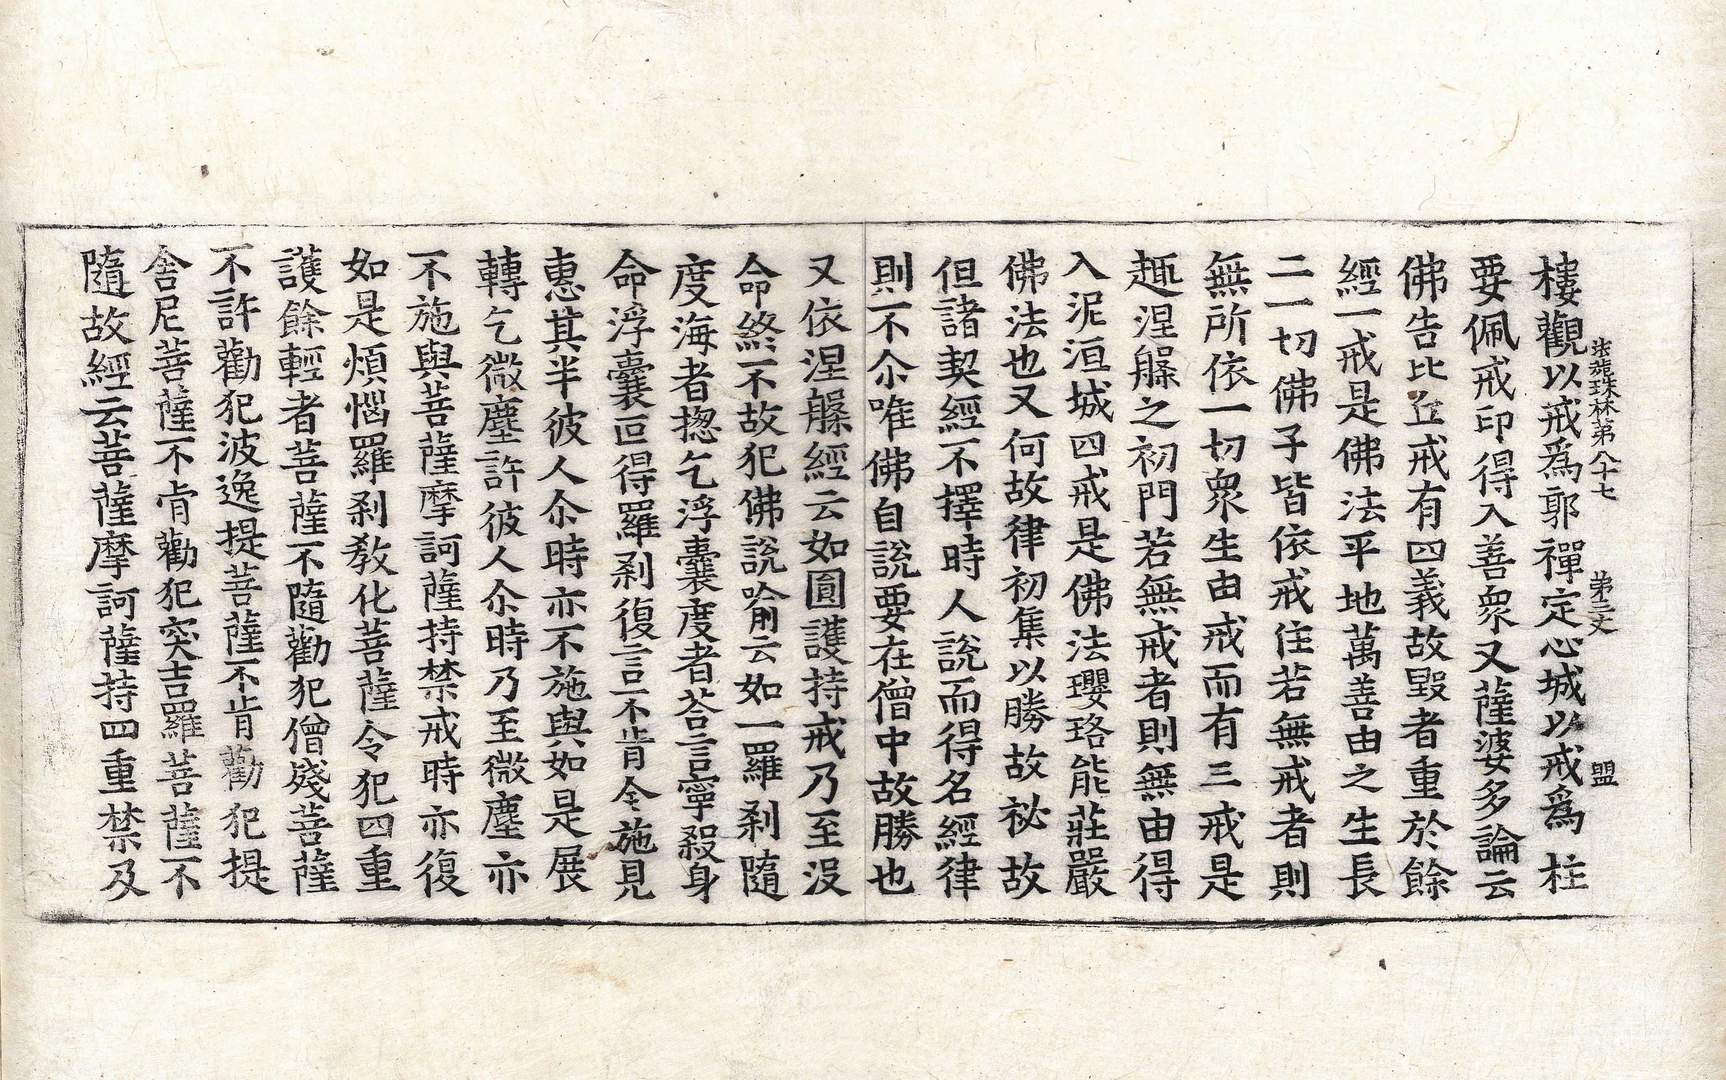 法苑珠林第八十七 第三丈 盟
樓觀以戒為郭禪定心城以戒為柱
要佩戒印得入善衆又薩婆多論云
佛告比丘戒有四義故毀者重於餘
經一戒是佛法平地萬善由之生長
二一切佛子皆依戒住若無戒者則
無所依一切衆生由戒而有三戒是
趣涅槃之初門若無戒者則無由得
入泥洹城四戒是佛法瓔珞能莊嚴
佛法也又何故律初集以勝故祕故
但諸契經不擇時人說而得名經律
則不尒唯佛自說要在僧中故勝也
又依涅槃經云如圓護持戒乃至沒
命終不故犯佛說喻云如一羅剎隨
度海者揔乞浮囊度者荅言寧殺身
命浮囊叵得羅剎復言不肯令施見
惠其半彼人尒時亦不施與如是展
轉乞微塵許彼人尒時乃至微塵亦
不施與菩薩摩訶薩持禁戒時亦復
如是煩惱羅剎教化菩薩令犯四重
護餘輕者菩薩不隨勸犯僧殘菩薩
不許勸犯波逸提菩薩不肯勸犯提
舍尼菩薩不肯勸犯突吉羅菩薩不
隨故經云菩薩摩訶薩持四重禁及